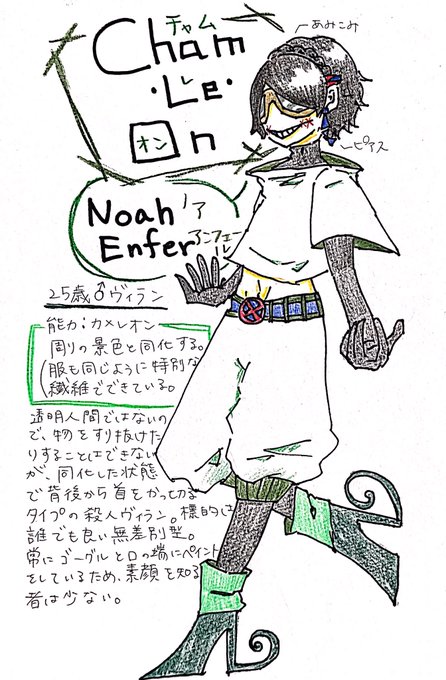 チャム
Cham
レ
・Le・
オン
On
あみこみ
ピアス
Noah
ノア
Enfer
アンフェール
25歳♂ヴィラン
能力:カメレオン
周りの景色と同化する。
(服も同じように特別な
繊維でできている。
透明人間ではないの
で、物をすり抜けた
りすることはできない
が、同化した状態
で背後から首をかっ切る
タイプの殺人ヴィラン。標的は
誰でも良い無差別型。
常にゴーグルと口の端にペイント
をしているため、素顔を知る
者は少ない。